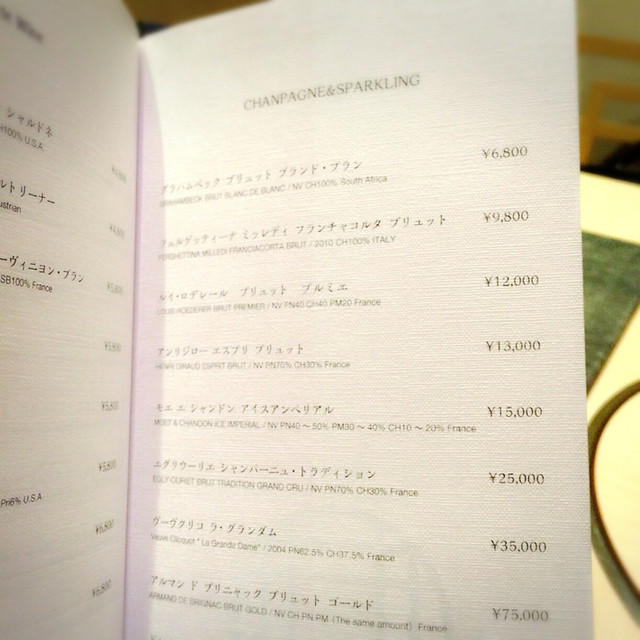 シャルドネ
100% U.S.A
ルトリーナー
ustrian
ーヴィニヨン・ブラン
SB100% France
¥5,800
¥5,800
¥5,800
Pn6% U.S.A
¥6,800
¥6,800
CHANPAGNE&SPARKLING
グラハムベック ブリュット ブランド・ブラン ¥6,800
GRAHAMBECK BRUT BLANC DE BLANC / NV CH100% South Africa
フェルゲッティーナ ミッレディ フランチャコルタ ブリュット ¥9,800
FERGHETTINA MILLEDI FRANCIACORTA BRUT / 2010 CH100% ITALY
ルイ・ロデレール ブリュット プルミエ ¥12,000
LOUIS ROEDERER BRUT PREMIER / NV PN40 CH40 PM20 France
アンリジロー エスプリ ブリュット ¥13,000
HENRI GIRAUD ESPRIT BRUT / NV PN70% CH30% France
モエ エ シャンドン アイスアンペリアル ¥15,000
MOET & CHANDON ICE IMPERIAL / NV PN40 〜 50% PM30 〜 40% CH10 〜 20% France
エグリウーリエ シャンパーニュ・トラディション ¥25,000
EGLY OURIET BRUT TRADITION GRAND CRU / NV PN70% CH30% France
ヴーヴクリコ ラ・グランダム ¥35,000
Veuve Clicquot " La Grande Dame" / 2004 PN62.5% CH37.5% France
アルマン ド ブリニャック ブリュット ゴールド ¥75,000
ARMAND DE BRIGNAC BRUT GOLD / NV CH PN PM (The same amount) France